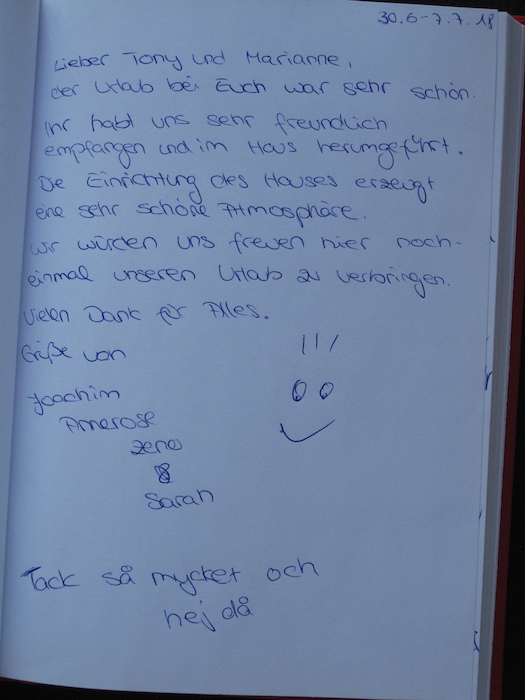 30.6-7.7.18
Lieber Tony und Marianne,
der Urlaub bei Euch war sehr schön.
Ihr habt uns sehr freundlich
empfangen und im Haus herumgeführt.
Die Einrichtung des Hauses erzeugt
eine sehr schöne Atmosphäre.
Wir würden uns freuen hier noch-
einmal unseren Urlaub zu verbringen.
Vielen Dank für Alles.
Grüße von
Joachim
Annerose
&
Sarah
Tack så mycket och
hej då